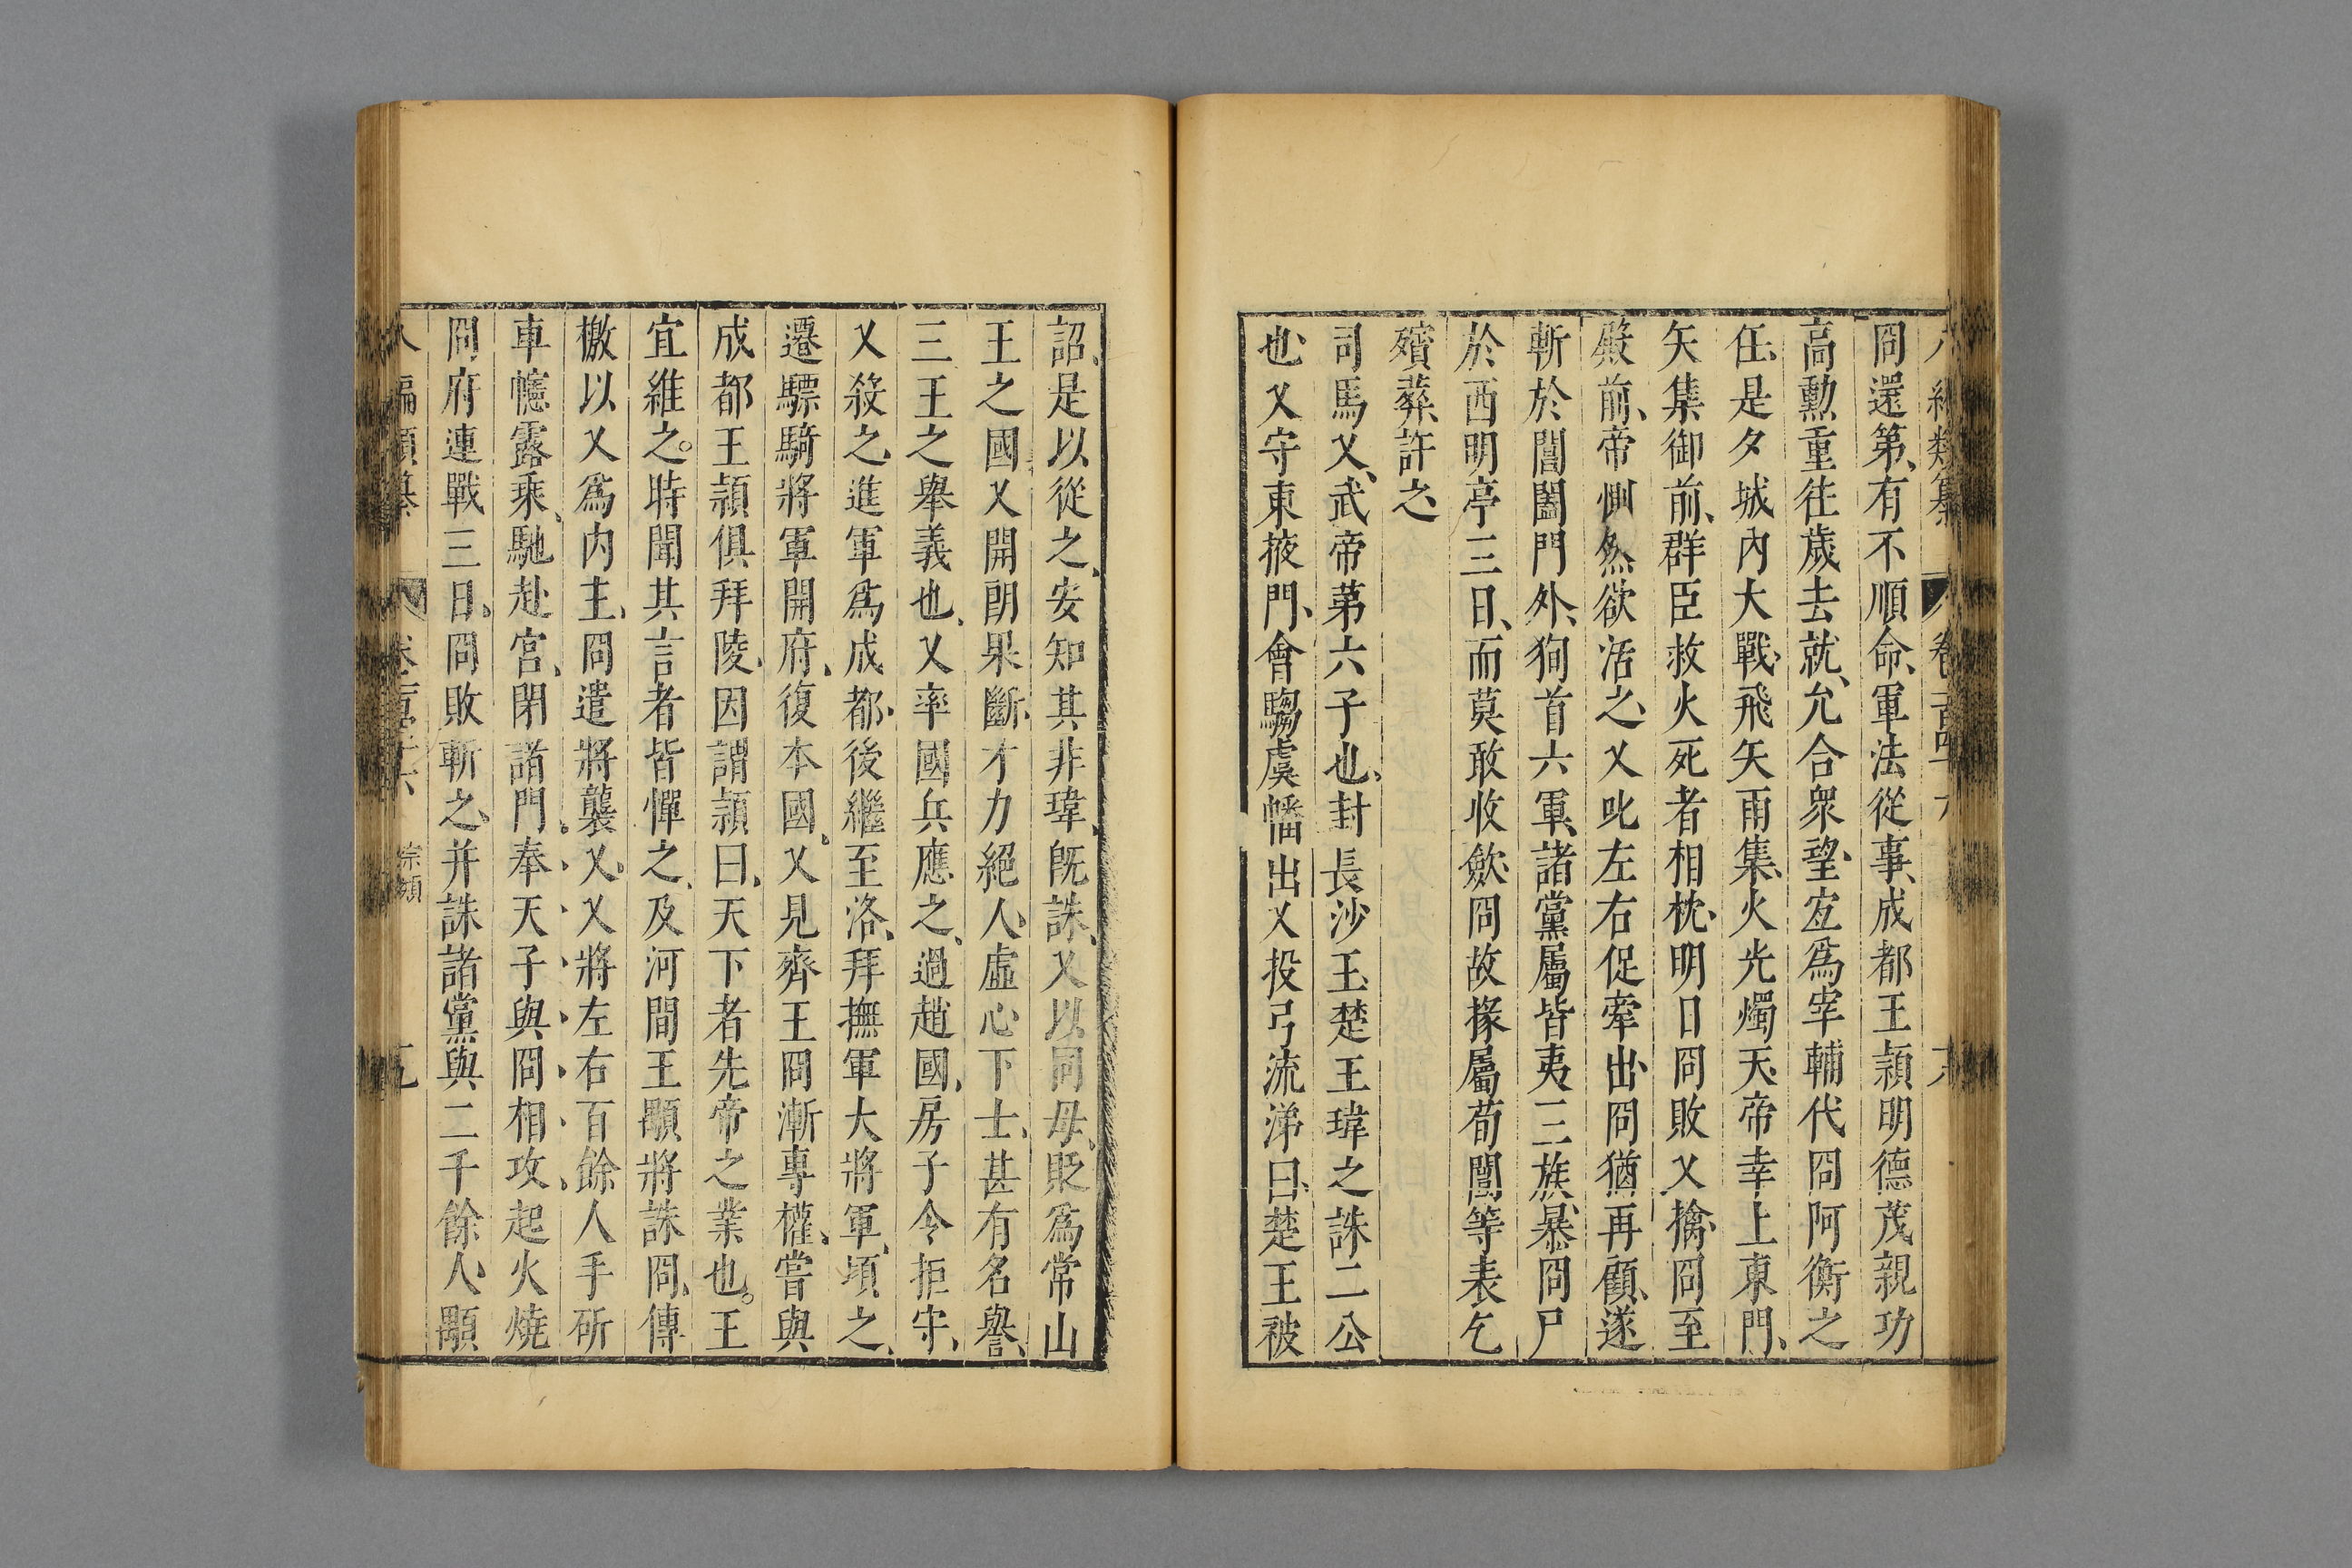 冏還第、有不順命、軍法從事、成都王頴明德茂親功
高勲重往歲去就、允合衆望、宐爲宰輔代冏阿衡之
任、是夕城內大戰、飛矢雨集、火光燭天、帝幸上東門、
矢集御前、群臣救火死者相枕、明日冏敗乂擒冏至
殿前、帝惻然欲活之、乂叱左右促牽出、冏猶再顧、遂
斬於閶闔門外、狥首六軍、諸黨屬皆夷三族、暴冏尸
於西明亭三日、而莫敢收歛、冏故掾屬荀闓等表乞
殯葬、許之、
司馬乂、武帝第六子也、封長沙王、楚王瑋之誅二公
也、乂守東掖門、會騶虞幡出乂投弓流涕曰、楚王被
詔、是以從之、安知其非瑋、旣誅、乂以同母、貶爲常山
王之國、乂開朗果斷、才力絕人、虛心下士、甚有名譽、
三王之舉義也、乂率國兵應之、過趙國、房子令拒守、
乂殺之、進軍爲成都、後繼至洛、拜撫軍大將軍、頃之、
遷驃騎將軍開府、復本國、乂見齊王冏漸專權、嘗與
成都王頴俱拜陵、因謂頴曰、天下者先帝之業也。王
宜維之。時聞其言者皆憚之、及河間王顒將誅冏、傳
檄以乂爲內主、冏遣將襲乂、乂將左右百餘人手斫
車幰露乘、馳赴宮、閉諸門、奉天子與冏、相攻、起火燒
冏府連戰三日、冏敗斬之、并誅諸黨與二千餘人、顒
宗類